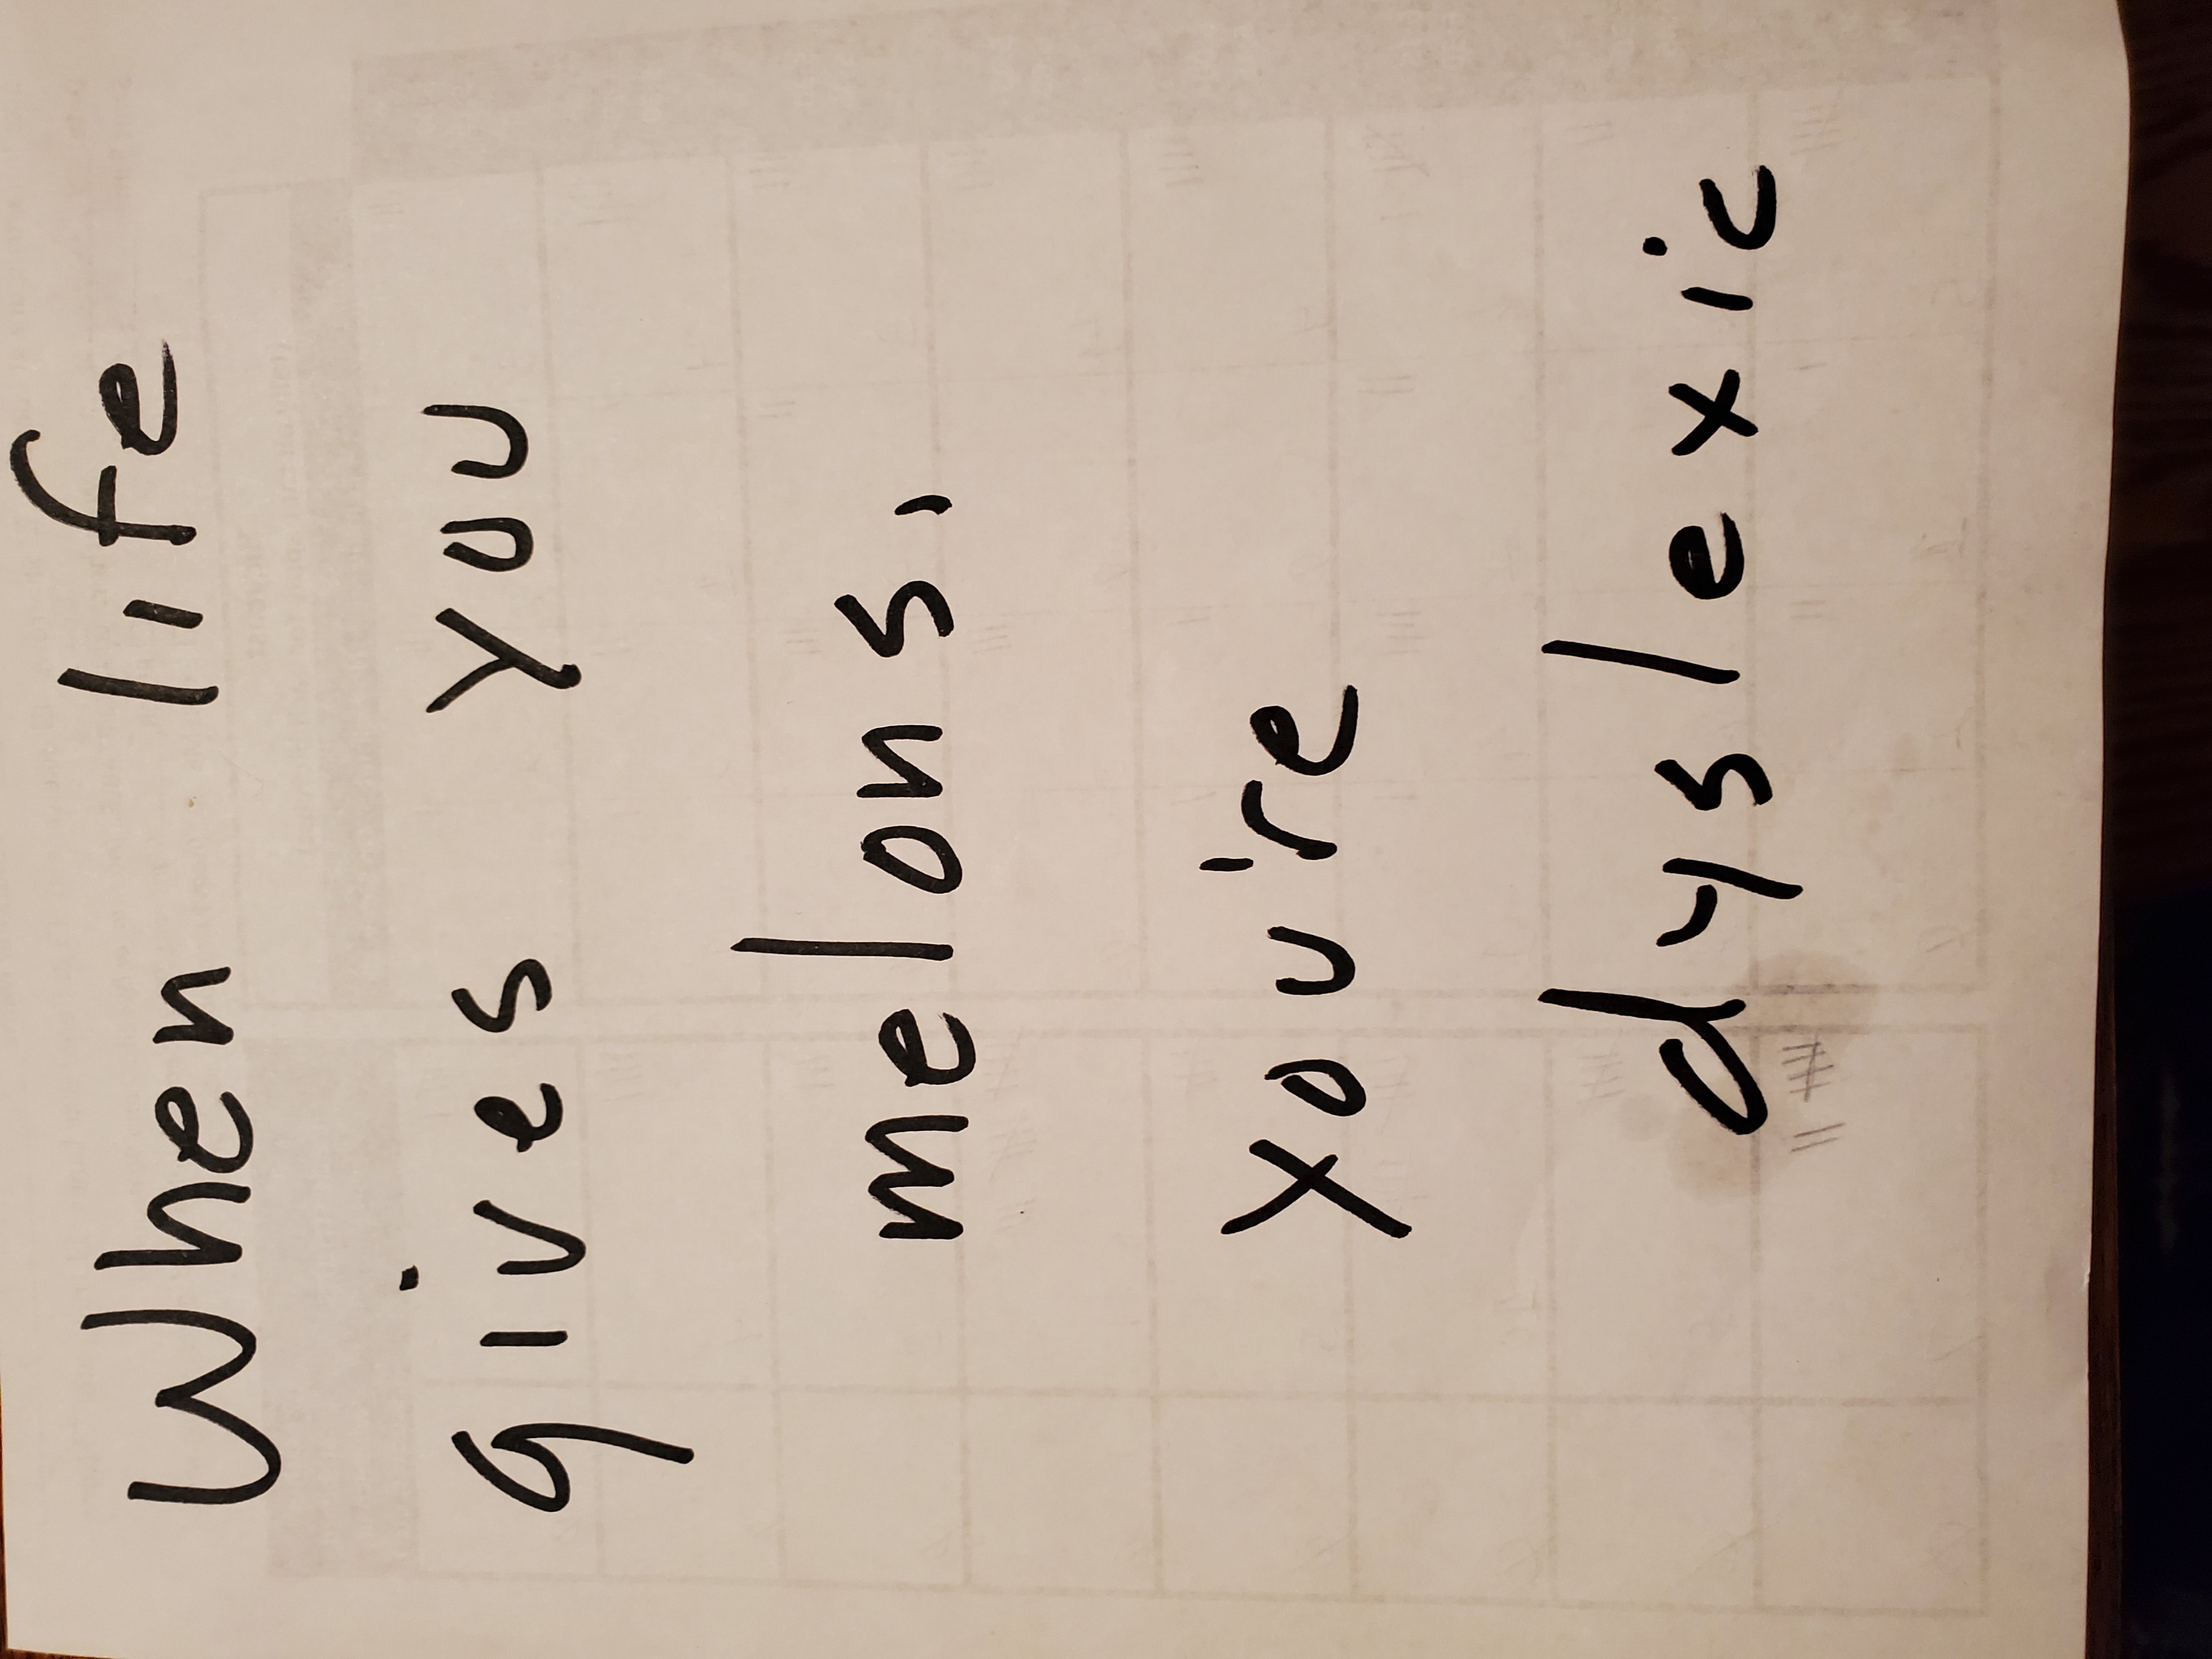 When life
gives you
melons,
you're
dyslexic